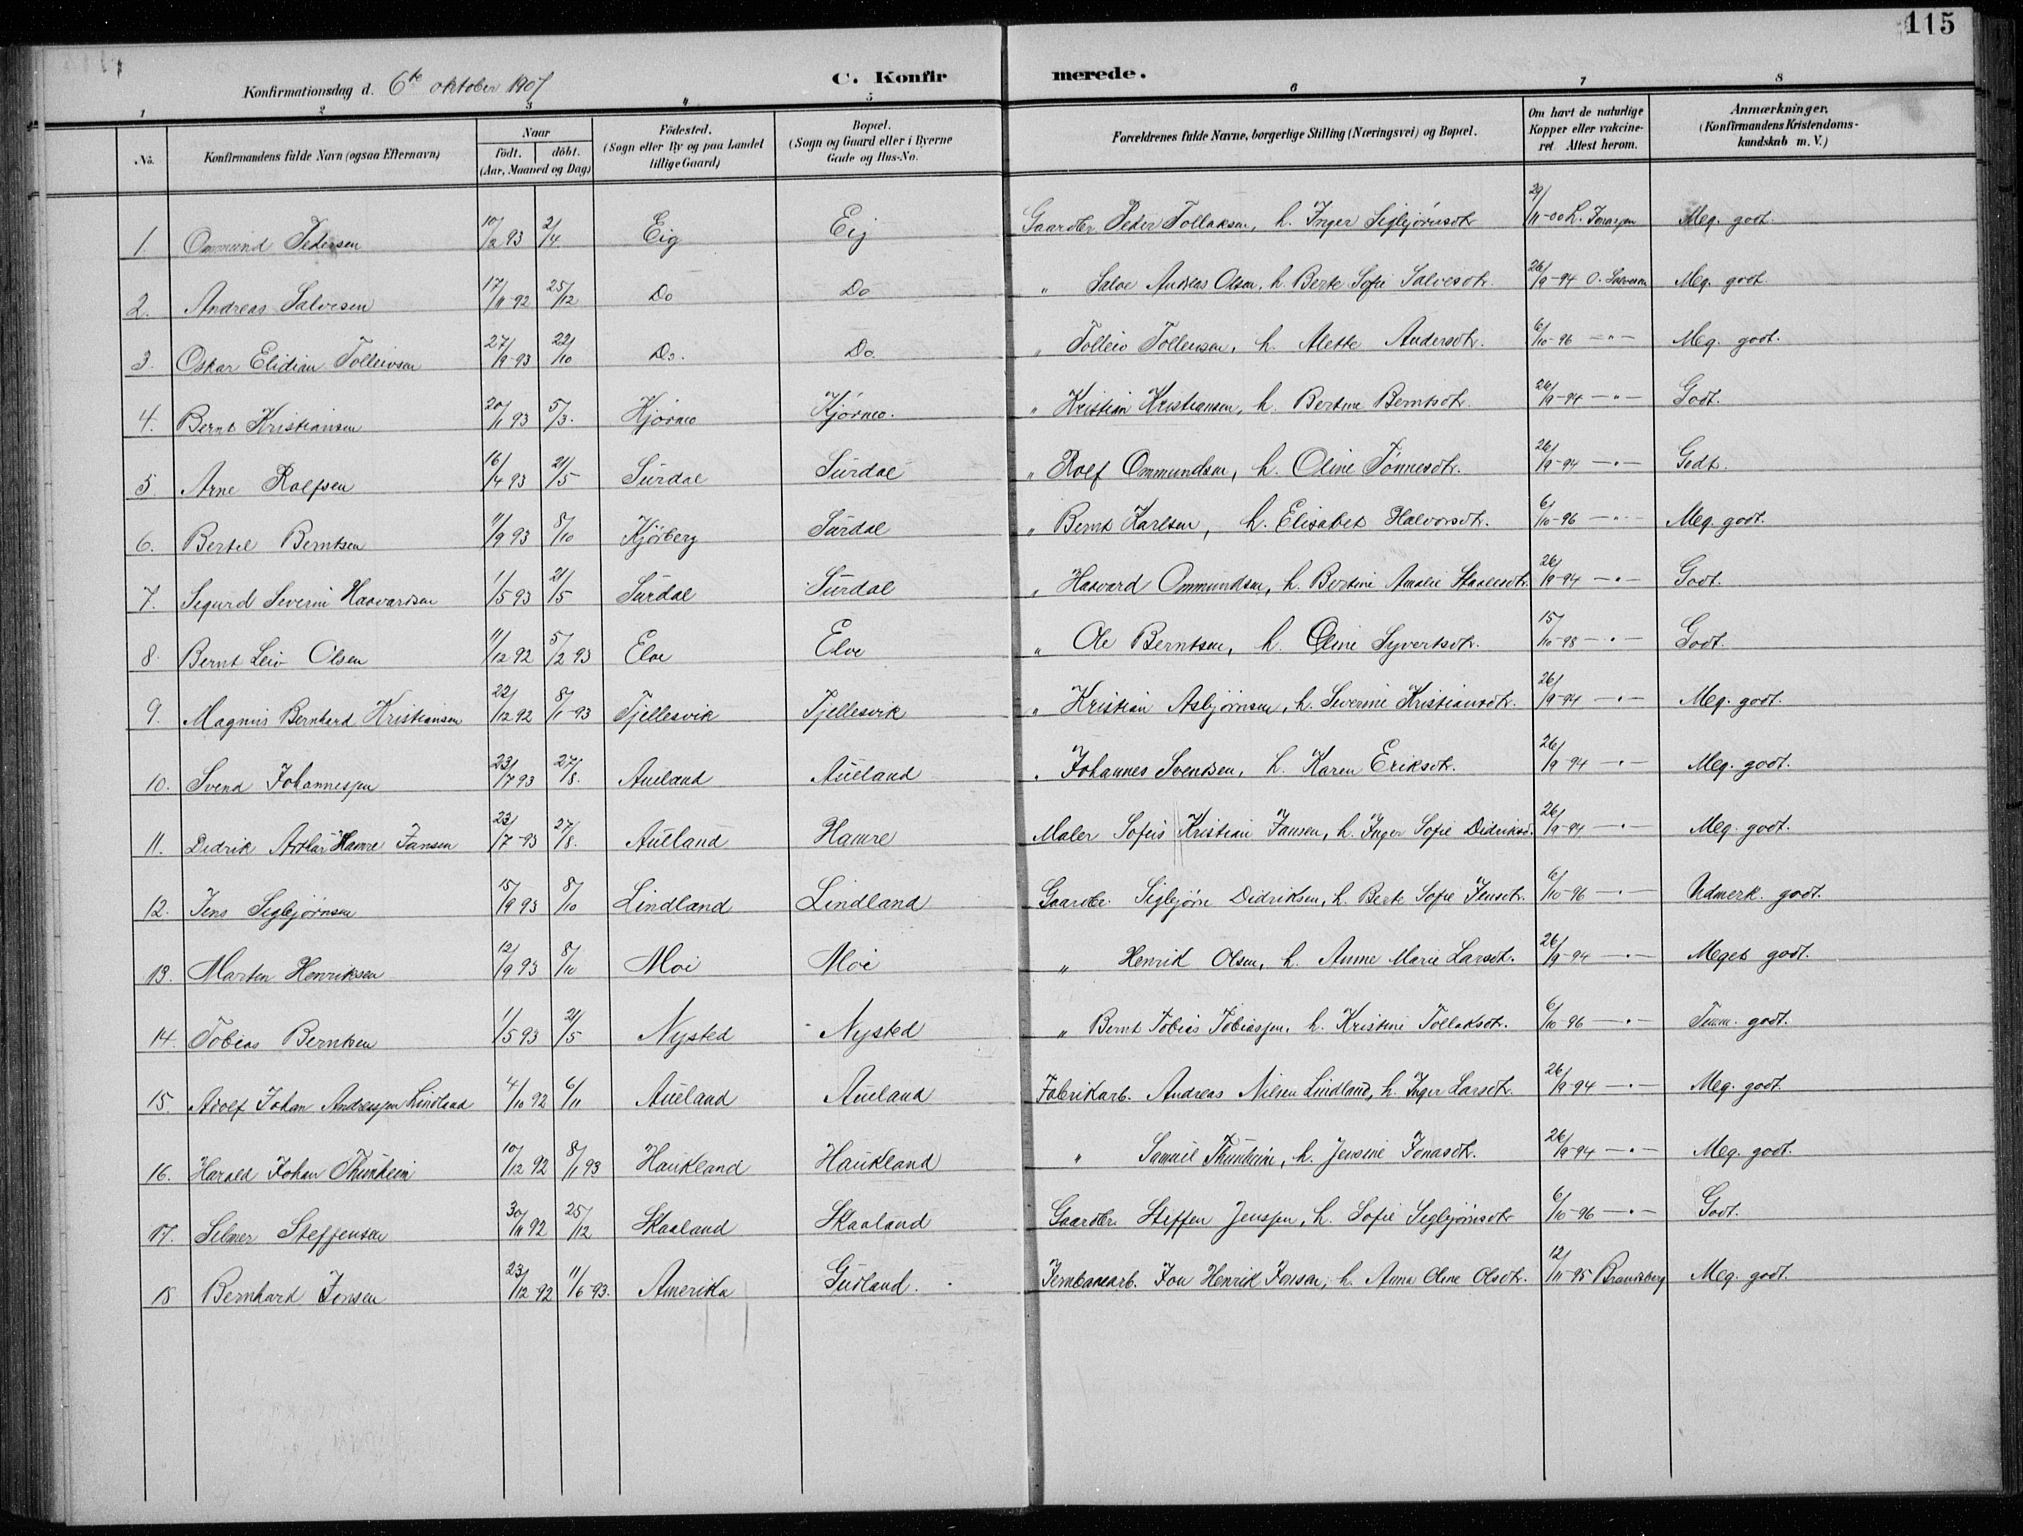 115
Konfirmationsdag d. 6te oktober 1907
C. Konfirmerede.
1 2 3 4 5 6 7 8
No. Konfirmandens fulde Navn (ogsaa Efternavn) Naar födt. döbt. (Aar, Maaned og Dag) Födested. (Sogn eller By og paa Landet tillige Gaard) Bopæl. (Sogn og Gaard eller i Byerne Gade og Hus-No. Forældrenes fulde Navne, borgerlige Stilling (Næringsvei) og Bopæl. Om havt de naturlige Kopper eller vakcineret Attest herom. Anmærkninger. (Konfirmandens Kristendomskundskab m. V.)
1. Ommund Pedersen 10/2 93 2/4. Eig Eij Gaardbr. Peder Tollaksen, h. Inger Sigbjørnsdtr. 29/11-00 L. Meg. godt
2. Andreas Salvesen 17/11 92 25/12 Do Do " Salve Andreas Olsen, h. Berte Sofie Salvesdtr. 26/9-94 O. Salvesen Meg. godt.
3. Oskar Elidian Tolleivsen 27/9-93 22/10 Do. Do " Tolleiv Tollensen, h. Alette Andersdtr. 6/10-96 -"- Meg. godt.
4. Bernt Kristiansen 20/1 93 5/3. Kjørmo Kjørmo. " Kristian Kristiansen, h. Bertine Berntsdtr. 26/9-94 -"- Godt.
5. Arne Rolfsen 16/4 93 21/5 Surdal Surdal " Rolf Ommundsen, h. Oline Tønnesdtr. 26/9-94 -"- Godt.
6. Bertel Berntsen 11/9 93 8/10 Kjørberg Surdal " Bernt Karlsen, h. Elisabet Halvorsdtr. 6/10-96 -"- Meg. godt.
7. Sigurd Severin Haavardsen 1/5 93 21/5 Surdal Surdal " Haavard Ommundsen, h. Bertine Amalie Staalesdtr. 26/9-94 -"- Godt.
8. Bernt Leiv Olsen 11/12 92 5/2 93 Elve Elve " Ole Berntsen, h. Oline Syvertsdtr. 15/10-98 -"- Godt.
9. Magnus Bernhard Kristiansen 22/12 92 8/1-93 Tjellesvik Tjellesvik " Kristian Asbjørnsen, h. Severine Kristiansdtr. 26/9-94 -"- Meg. godt.
10. Svend Johannessen 23/7 93 27/8. Aueland Aueland " Johannes Svendsen, h. Karen Eriksdtr. 26/9 94 -"- Meg. godt.
11. Didrik Artur Hamre Jansen 23/7-93 27/8. Aueland Hamre Maler Sofus Kristian Jansen, h. Inger Sofie Didriksd. 26/9-94 -"- Meg. godt.
12. Jens Sigbjørnsen 15/9 93 8/10 Lindland Lindland Gaardbr. Sigbjørn Didriksen, h. Berte Sofie Jensdtr. 6/10-96 -"- Udmerk. godt.
13. Martin Henriksen 12/9 93 8/10 Moi Moi " Henrik Olsen, h. Anne Marie Larsdtr. 26/9-94 -"- Meget godt.
14. Tobias Berntsen 1/5 93 21/5 Nysted Nysted " Bernt Tobias Tobiassen, h. Kristine Tollaksdtr. 6/10-96 -"- Temm. godt.
15. Adolf Johan Andreassen Lindland 4/10 92 6/11 Aueland Aueland Fabrikarb. Andreas Nilsen Lindland, h. Inger Larsdtr. 26/9-94 -"- Meg. godt.
16. Harald Johan Thunheim 10/12 92 8/1 93 Haukland Haukland " Samuel Thunheim, h. Jensine Jonasdtr. 26/9-94 -"- Meg. godt.
17. Selmer Steffensen 30/11 92 25/12 Skaaland Skaaland Gaardbr. Steffen Jenssen, h. Sofie Sigbjørnsdtr 6/10-96 -"- Godt.
18 Bernhard Jonsen 23/12 92 11/6-93. Amerika Gudland. Jernbanearb. Jon Henrik Jonsen, h. Anna Oline Olsdtr. 12/11-95 Brandsberg Meg. godt.